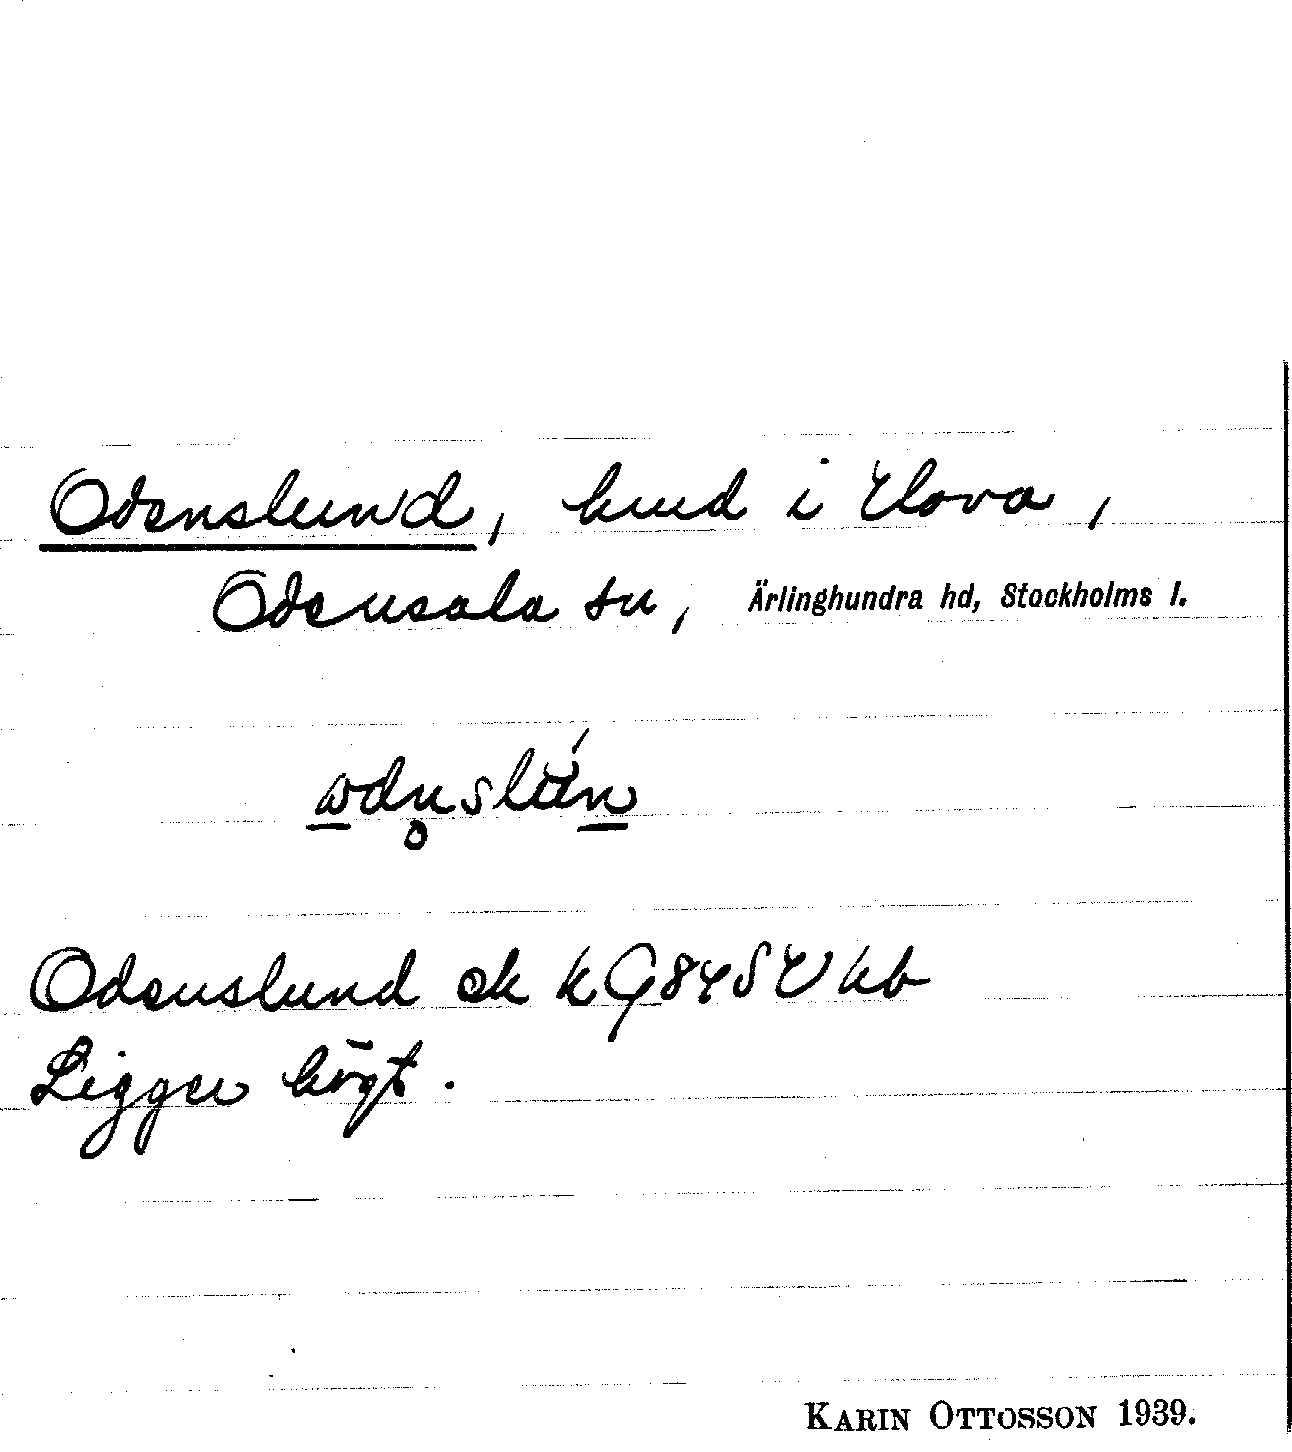 Odenslund, hmd i Elova,
Odensala sn, Ärlinghundra hd, Stockholms l.
Odenslund ek
Ligger högt.
KARIN OTTOSSON 1939.